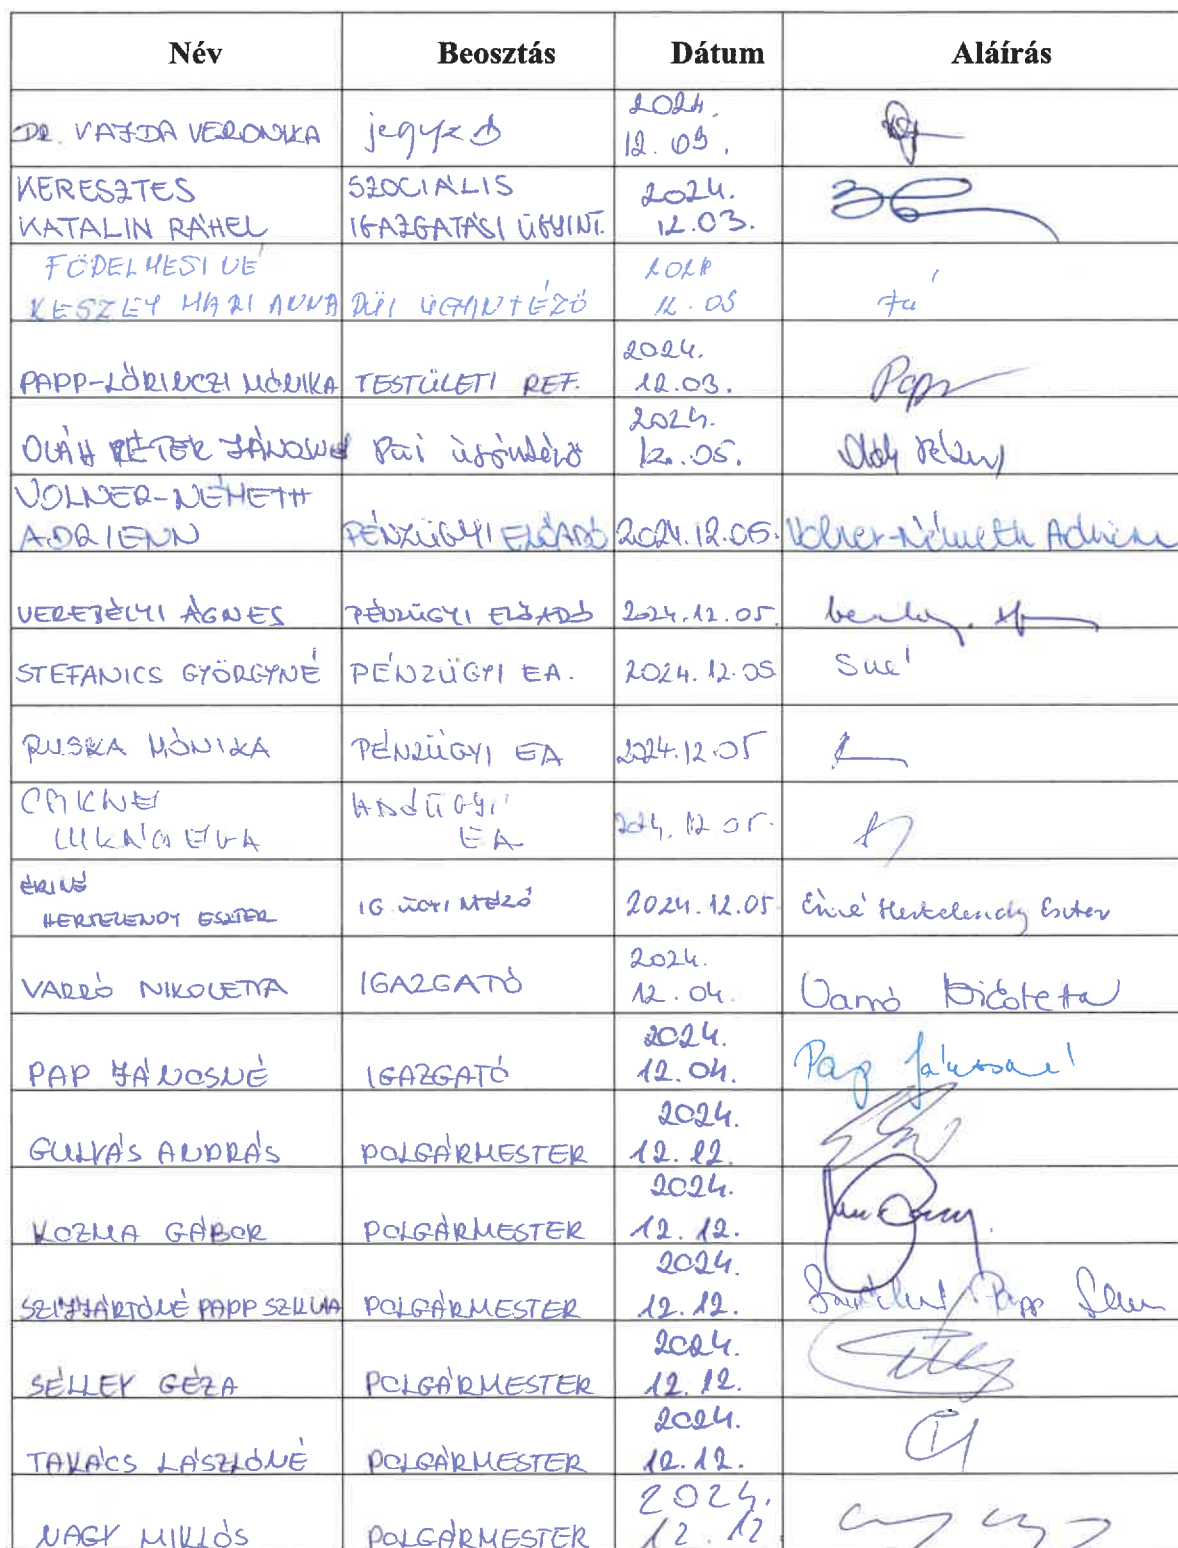 Név Beosztás Dátum Aláírás
DR. VAJDA VERONIKA jegyző 2024. 12. 03.
KERESZTES SZOCIÁLIS 2024.
KATALIN RÁHEL IGAZGATÁSI ÜGYINT. 12.03.
KESZEY MARIANNA
PAPP-LŐRINCZI MÓNIKA TESTÜLETI REF. 2024. 12.03. Papp
OLÁH PÉTER JÁNOS 2024. 12.05.
VOLNER-NÉMETH
ADRIENN PÉNZÜGYI ELŐADÓ 2024.12.05. Volner-Németh Adrienn
VEREBÉLYI ÁGNES PÉNZÜGYI ELŐADÓ 2024.12.05.
STEFANICS GYÖRGYNÉ PÉNZÜGYI EA. 2024.12.05
RUSKA MÓNIKA PÉNZÜGYI EA 2024.12.05
EA 2024. 12 05.
ÉRINÉ
HERTELENDY ESZTER IG ÜGYINTÉZŐ 2024.12.05 Ériné Hertelendy Eszter
VARRÓ NIKOLETTA IGAZGATÓ 2024. 12.04. Varró Nikoletta
PAP JÁNOSNÉ IGAZGATÓ 2024. 12.04. Pap Jánosné
GULYÁS ANDRÁS POLGÁRMESTER 2024. 12.12.
KOZMA GÁBOR POLGÁRMESTER 2024. 12.12.
SZIJJÁRTÓNÉ PAPP SZILVIA POLGÁRMESTER 2024. 12.12.
SÉLLEY GÉZA POLGÁRMESTER 2024. 12.12.
TAKÁCS LÁSZLÓNÉ POLGÁRMESTER 2024. 12.12.
NAGY MIKLÓS POLGÁRMESTER 2024. 12.12